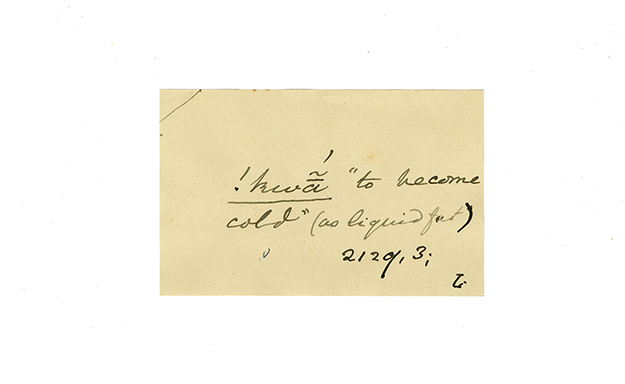 !kwā̃́ "to become
cold" (as liquid fat)
2129, 3;
L